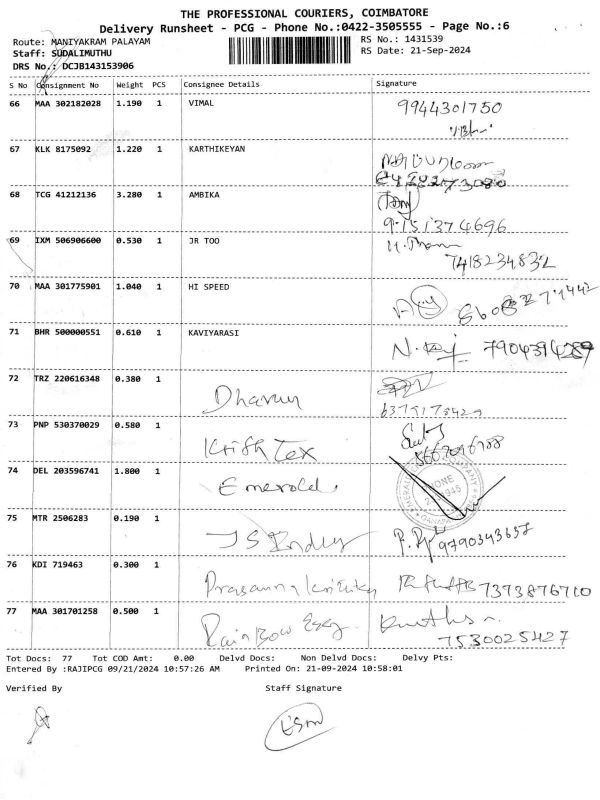 THE PROFESSIONAL COURIERS, COIMBATORE
Delivery Runsheet - PCG - Phone No.:0422-3505555 - Page No.:6
Route: MANIYAKRAM PALAYAM
RS No.: 1431539
Staff: SUDALIMUTHU
RS Date: 21-Sep-2024
DRS No.: DCJB143153906
S No Consignment No Weight PCS Consignee Details Signature
66 MAA 302182028 1.190 1 VIMAL 9944301750
67 KLK 8175092 1.220 1 KARTHIKEYAN
68 TCG 41212136 3.280 1 AMBIKA
9151374696
69 IXM 506906600 0.530 1 JR TOO
7418234832
70 MAA 301775901 1.040 1 HI SPEED
71 BHR 500000551 0.610 1 KAVIYARASI
72 TRZ 220616348 0.380 1 Dharun
73 PNP 530370029 0.580 1 Krish Tex
74 DEL 203596741 1.800 1 Emerold
75 MTR 2506283 0.190 1 9790343657
76 KDI 719463 0.300 1 7373876710
77 MAA 301701258 0.500 1 Rainbow
7530025427
Tot Docs: 77 Tot COD Amt: 0.00 Delvd Docs: Non Delvd Docs: Delvy Pts:
Entered By :RAJIPCG 09/21/2024 10:57:26 AM Printed On: 21-09-2024 10:58:01
Verified By Staff Signature